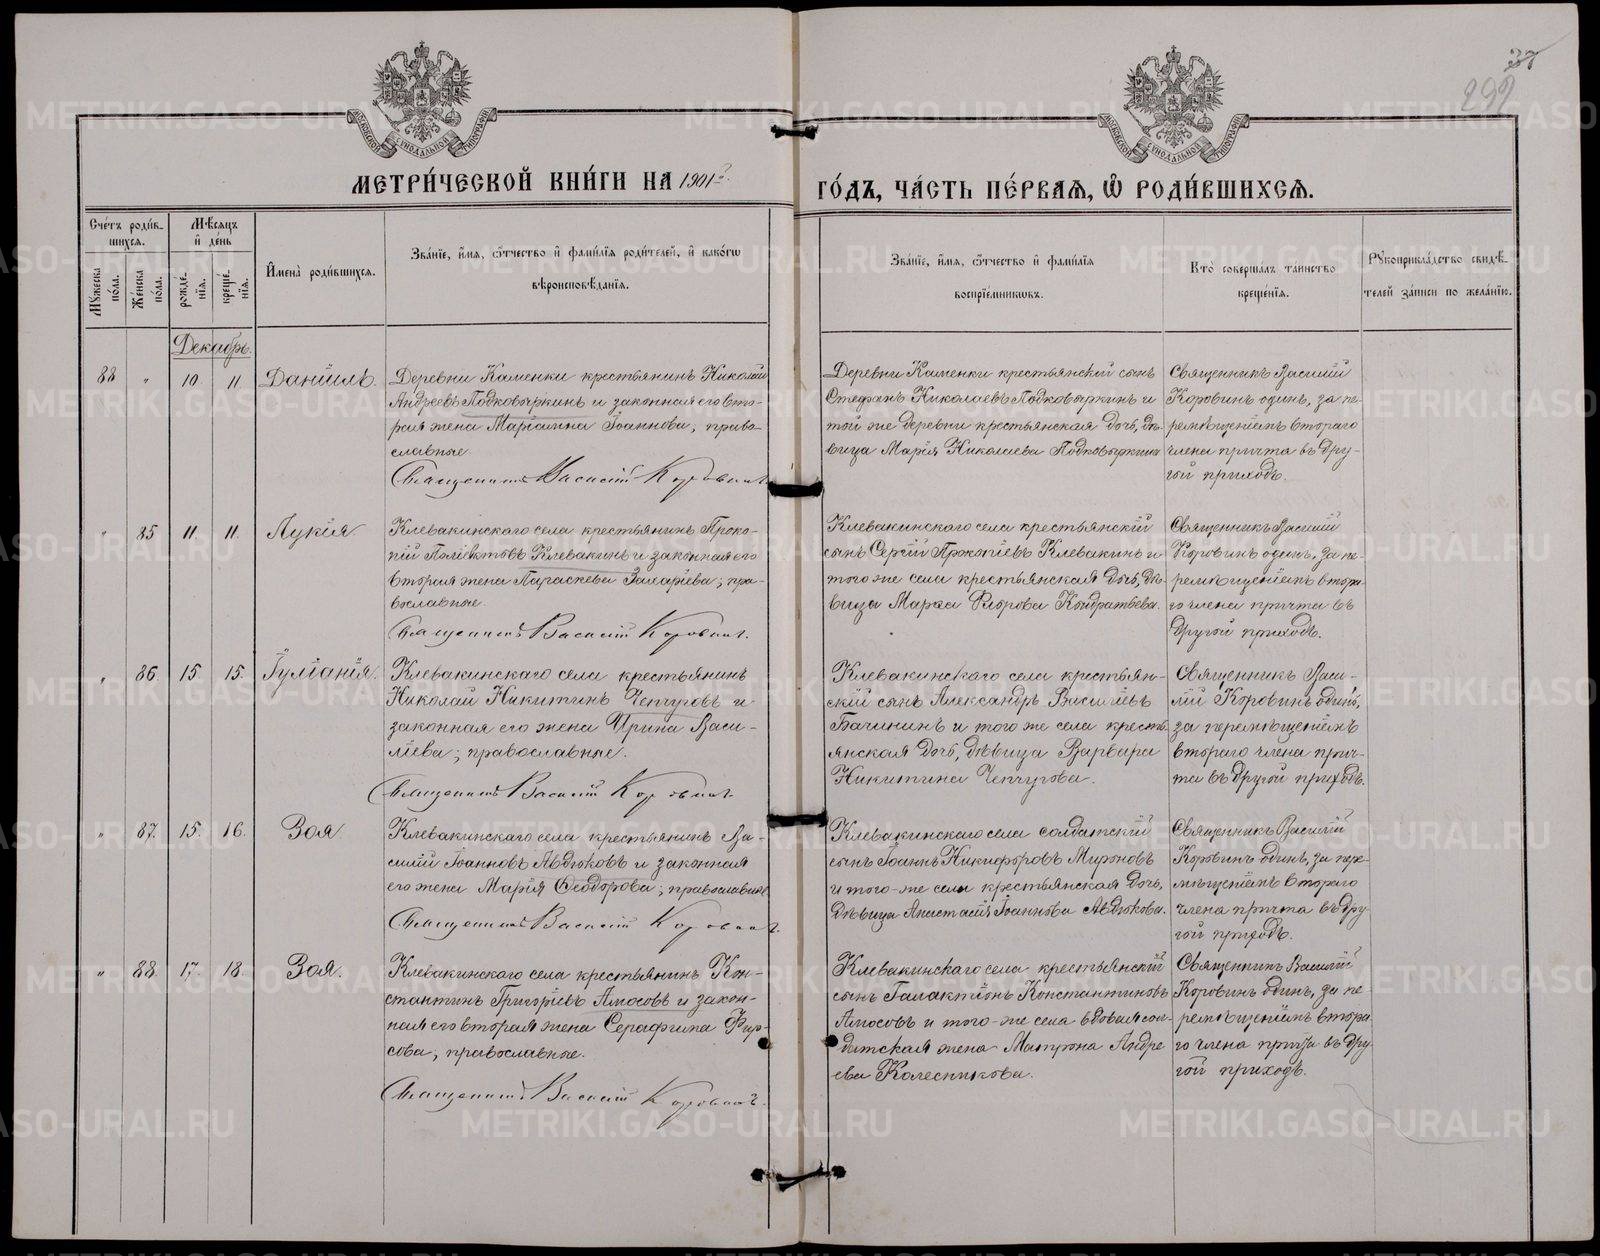 37
292
МОСКОВСКОЙ СѴНОДАЛЬНОЙ ТИПОГРАФІИ
МОСКОВСКОЙ СѴНОДАЛЬНОЙ ТИПОГРАФІИ
МЕТРИ́ЧЕСКОЙ КНИ́ГИ НА 1901й
ГО́ДЪ, ЧА́СТЬ ПЕ́РВАѦ, Ѽ РОДИ́ВШИХСѦ.
Сче́тъ роди́в-
шихсѧ.
Мѣ́сѧцъ
и҆ де́нь
Мꙋ́жеска по́ла.
Же́нска по́ла.
рожде́-
нїѧ.
креще́-
нїѧ.
И҆мена̀ роди́вшихсѧ.
Зва́нїе, и҆́мѧ, ѻ҆́тчество и҆ фами́лїѧ роди́телей, и҆ како́гѡ
вѣроисповѣ́данїѧ.
Зва́нїе, и҆́мѧ, ѻ҆́тчество и҆ фами́лїѧ
воспрїе́мникѡвъ.
Кто̀ соверша́лъ та́инство
креще́нїѧ.
Рꙋкоприкла́дство свидѣ́-
телей за́писи по жела́нїю.
Декабрь.
88 " 10. 11. Даніилъ.
Деревни Каменки крестьянинъ Николай
Андреевъ Подковыркинъ и законная его вто-
рая жена Маріамна Іоаннова, право-
славные
Священникъ Василій Коровинъ.
Деревни Каменки крестьянскій сынъ
Стефанъ Николаевъ Подковыркинъ и
той же деревни крестьянская дочь, дѣ-
вица Марія Николаева Подковыркина
Священникъ Василій
Коровинъ одинъ, за пе-
ремѣщеніемъ втораго
члена причта въ дру-
гой приходъ.
" 85 11. 11. Лукія
Клевакинскаго села крестьянинъ Проко-
пій Клевакинъ и законная его
вторая жена Параскева Захаріева; пра-
вославные.
Священникъ Василій Коровинъ.
Клевакинскаго села крестьянскій
сынъ Сергій Прокопіевъ Клевакинъ и
того же села крестьянская дочь, дѣ-
вица Марѳа Флорова Кондратьева.
Священникъ Василій
Коровинъ одинъ, за пе-
ремѣщеніемъ втора-
го члена причта въ
другой приходъ.
" 86. 15. 15. Іуліанія.
Клевакинскаго села крестьянинъ
Николай Никитинъ Чепчуговъ и
законная его жена Ирина Васи-
ліева; православные.
Священникъ Василій Коровинъ.
Клевакинскаго села крестьян-
скій сынъ Александръ Василіевъ
Бачининъ и того же села кресть-
янская дочь, дѣвица Варвара
Никитина Чепчугова.
Священникъ Васи-
лій Коровинъ одинъ,
за перемѣщеніемъ
втораго члена прич-
та въ другой приходъ.
" 87. 15. 16. Зоя
Клевакинскаго села крестьянинъ Ва-
силій Іоанновъ Авдюковъ и законная
его жена Марія Ѳеодорова; православные
Священникъ Василій Коровинъ.
Клевакинскаго села солдатскій
сынъ Іоаннъ Никифоровъ Мироновъ
и того-же села крестьянская дочь,
дѣвица Анастасія Іоаннова Авдюкова.
Священникъ Василій
Коровинъ одинъ, за пере-
мѣщеніемъ втораго
члена причта въ дру-
гой приходъ.
" 88. 17. 18. Зоя.
Клевакинскаго села крестьянинъ Кон-
стантинъ Григоріевъ Амосовъ и закон-
ная его вторая жена Серафима Фир-
сова, православные.
Священникъ Василій Коровинъ.
Клевакинскаго села крестьянскій
сынъ Галактіонъ Константиновъ
Амосовъ и того-же села вдовая сол-
датская жена Матрона Андре
ева Колесникова.
Священникъ Василій
Коровинъ одинъ, за пе-
ремѣщеніемъ втора
го члена причта въ дру-
гой приходъ.
METRIKI.GASO-URAL.RU